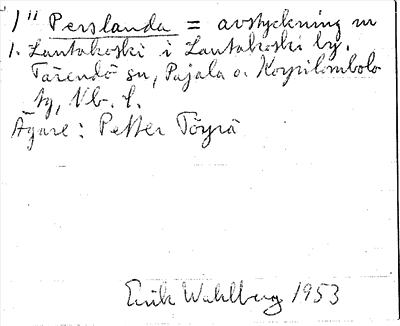 1" Perslanda = avstyckning av
1. Lantakoski i Lantakoski by.
Tärendö sn, Pajala o. Korpilombolo
tg, Nb. l.
Ägare: Petter Töyrä
Erik Wahlberg 1953